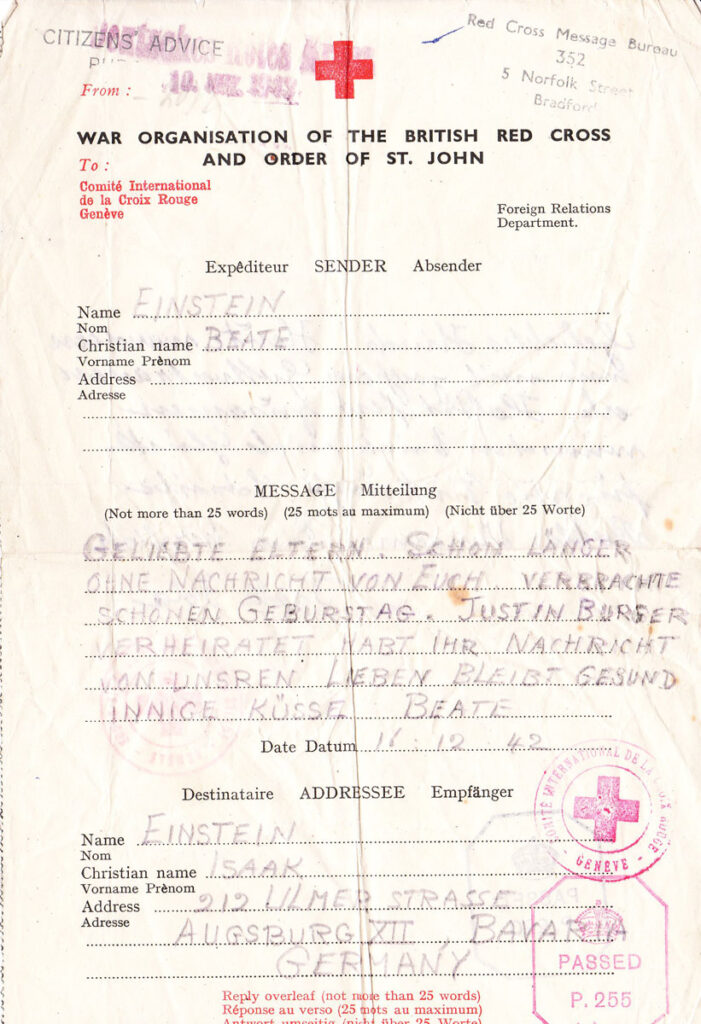 CITIZENS' ADVICE
Red Cross Message Bureau
352
5 Norfolk Street
Bradford
From :
WAR ORGANISATION OF THE BRITISH RED CROSS
AND ORDER OF ST. JOHN
To :
Comité International
de la Croix Rouge
Genève
Foreign Relations
Department.
Expéditeur SENDER Absender
Name EINSTEIN
Nom
Christian name BEATE
Vorname Prènom
Address
Adresse
MESSAGE Mitteilung
(Not more than 25 words) (25 mots au maximum) (Nicht über 25 Worte)
GELIEBTE ELTERN. SCHON LÄNGER
OHNE NACHRICHT VON EUCH VERBRACHTE
SCHÖNEN GEBURSTAG. JUSTIN BURGER
VERHEIRATET HABT IHR NACHRICHT
VON UNSREN LIEBEN BLEIBT GESUND
INNIGE KÜSSE BEATE
Date Datum 16 . 12 . 42
Destinataire ADDRESSEE Empfänger
COMITÉ INTERNATIONAL DE LA CROIX ROUGE
- GENÈVE -
Name EINSTEIN
Nom
Christian name ISAAK
Vorname Prènom
Address 212 ULMER STRASSE
Adresse
AUGSBURG XII, BAVARIA
GERMANY
PASSED
P. 255
Reply overleaf (not more than 25 words)
Réponse au verso (25 mots au maximum)
Antwort umseitig (nicht über 25 Worte)